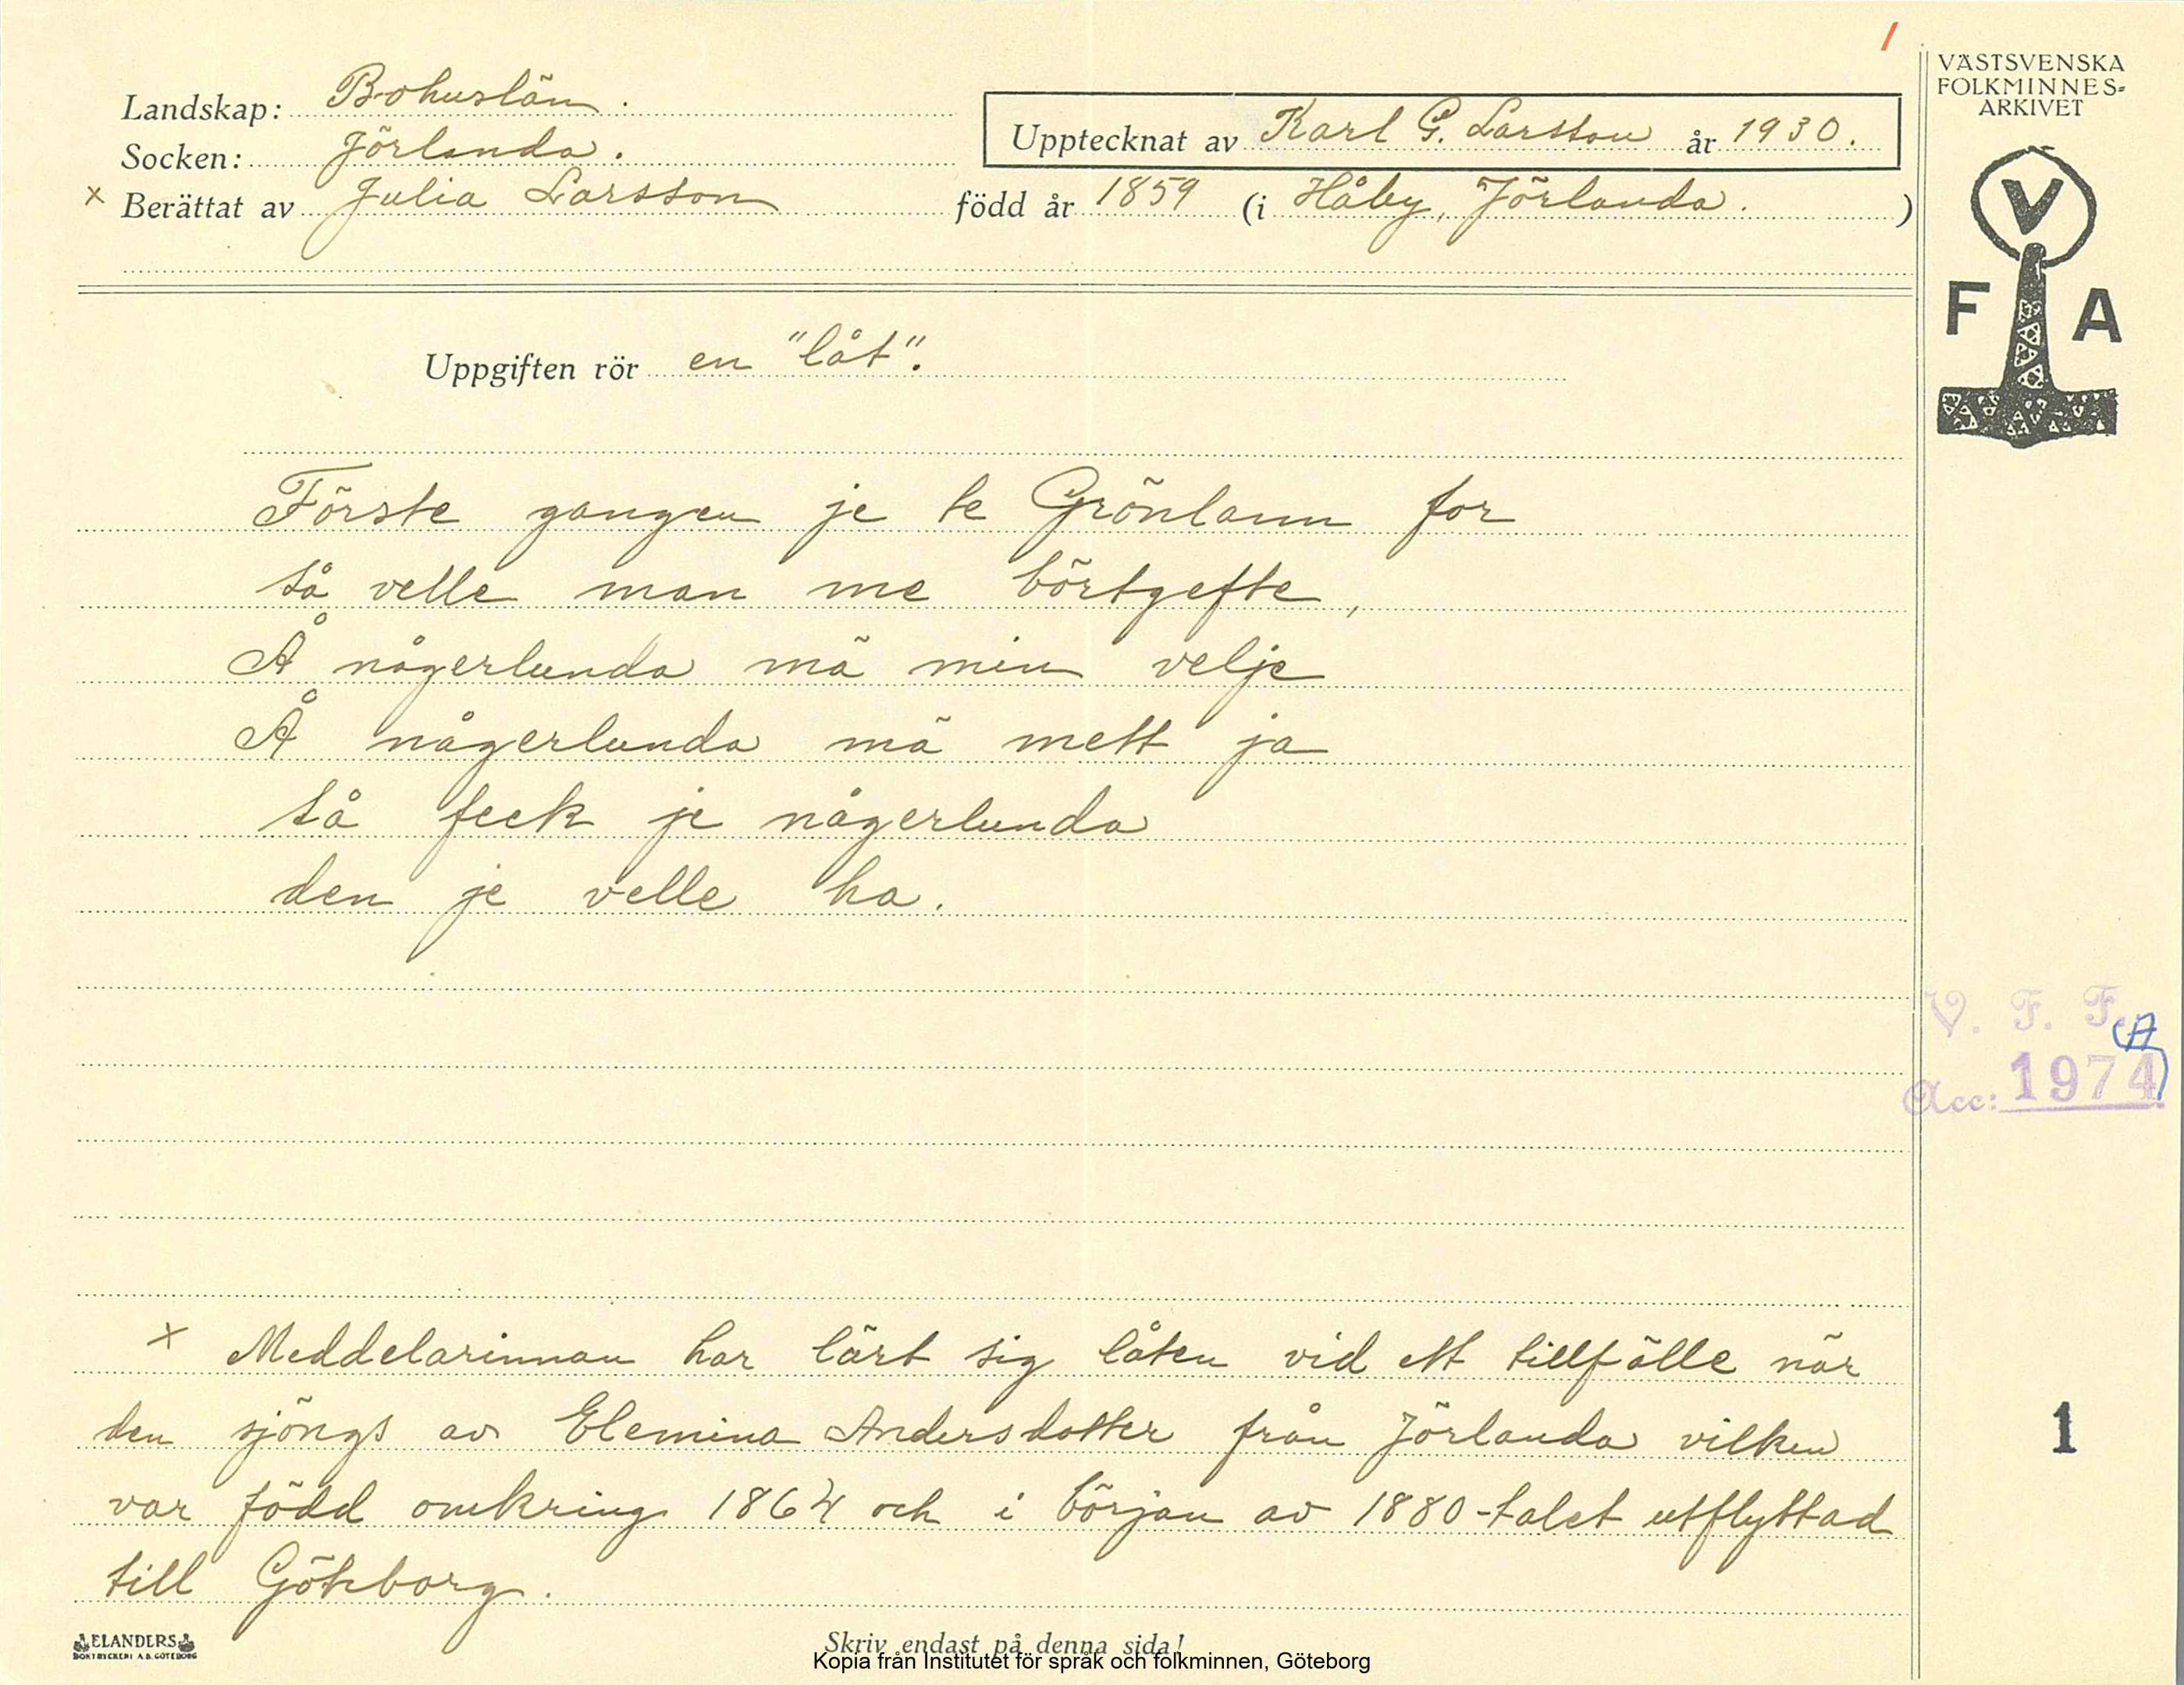 VÄSTSVENSKA
FOLKMINNES-
ARKIVET
V
F A
Landskap: Bohuslän.
Socken: Jörlanda.
Upptecknat av Karl G. Larsson år 1930.
x Berättat av Julia Larsson född år 1859 (i Håby, Jörlanda. )
Uppgiften rör en "låt".
Förste gangen je te Grönlann for
så velle man me börtgefte,
Å någerlunda mä min velje
Å någerlunda mä mett ja
så feck je någerlunda
den je velle ha.
V. F. F. (A)
Acc: 1974
x Meddelarinnan har lärt sig låten vid ett tillfälle när
den sjöngs av Elemina Andersdotter från Jörlanda vilken
var född omkring 1864 och i början av 1880-talet utflyttad
till Göteborg.
1
ELANDERS
BOKTRYCKERI A.B. GÖTEBORG
Skriv endast på denna sida!
Kopia från Institutet för språk och folkminnen, Göteborg